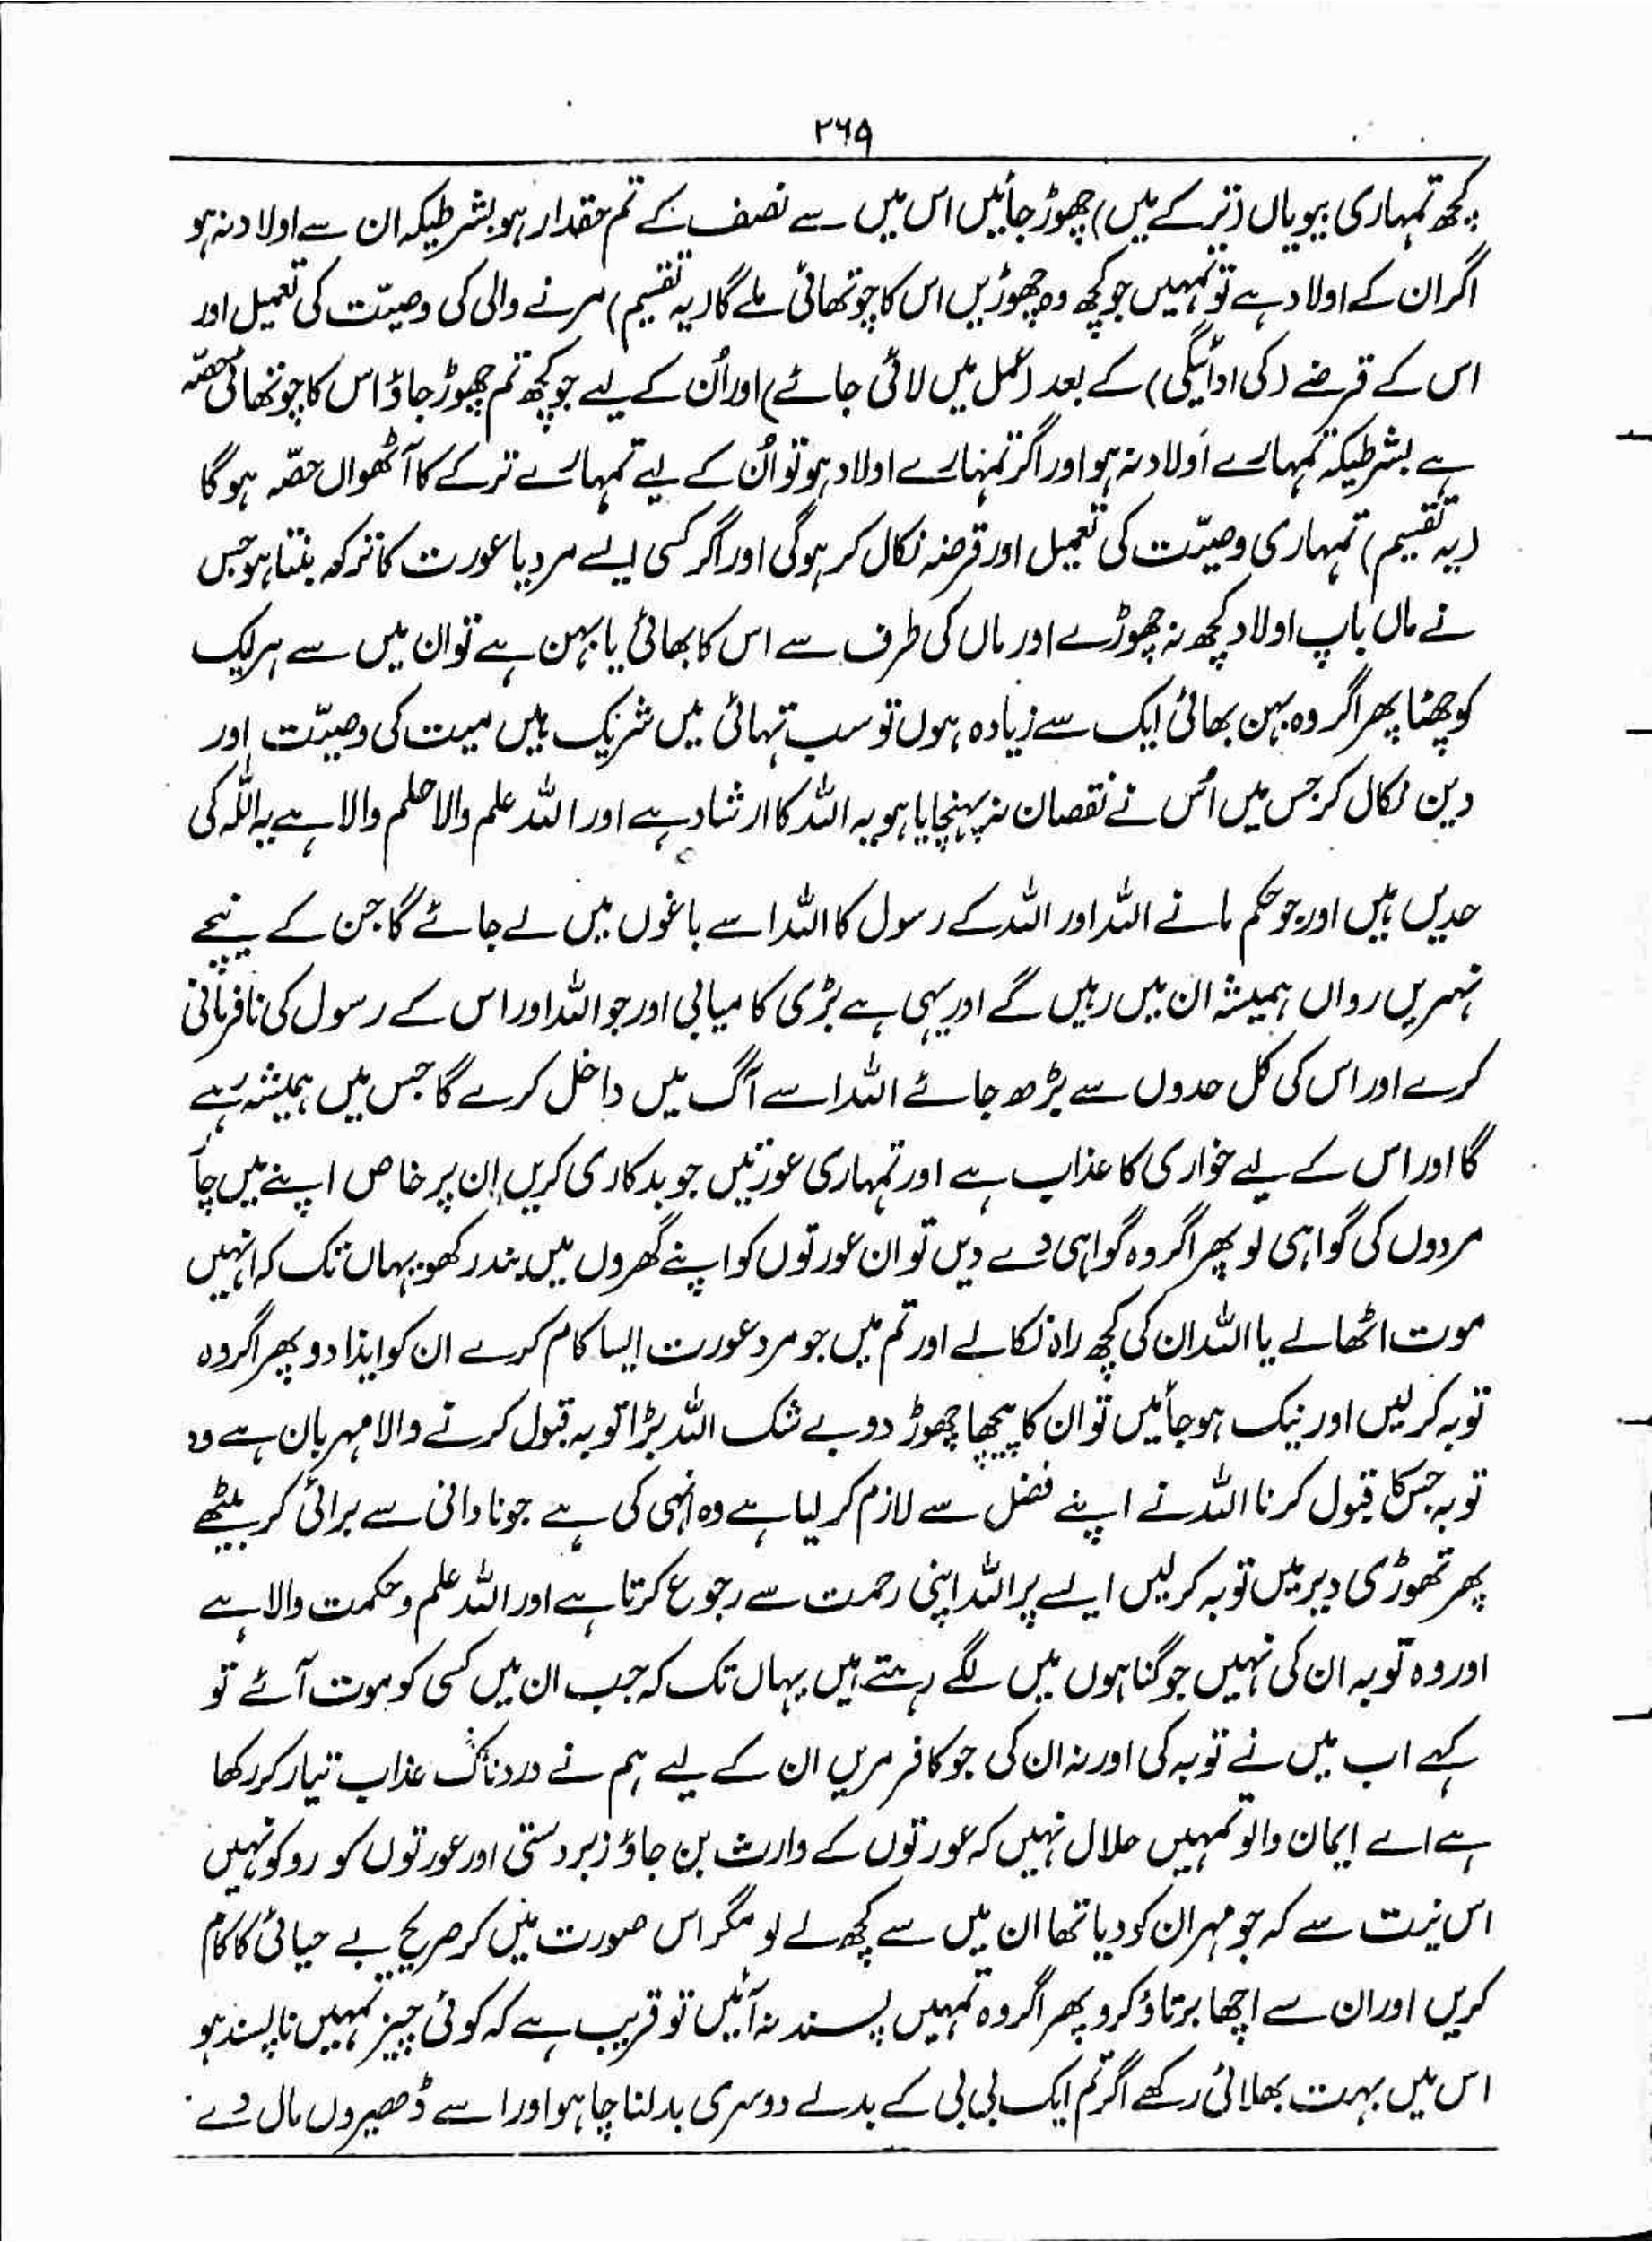 ۲۶۹
کچھ تمہاری بیویاں (ترکے میں) چھوڑ جائیں اس میں سے نصف کے تم حقدار ہو بشرطیکہ ان سے اولاد نہ ہو
اگر ان کے اولاد ہے تو تمہیں جو کچھ وہ چھوڑیں اس کا چوتھائی ملے گا (یہ تقسیم) مرنے والی کی وصیّت کی تعمیل اور
اس کے قرضے (کی ادائیگی) کے بعد (عمل میں لائی جائے) اور اُن کے لیے جو کچھ تم چھوڑ جاؤ اس کا چوتھائی حصّہ
ہے بشرطیکہ تمہارے اولاد نہ ہو اور اگر تمہارے اولاد ہو تو اُن کے لیے تمہارے ترکے کا آٹھواں حصّہ ہو گا
(یہ تقسیم) تمہاری وصیّت کی تعمیل اور قرضہ نکال کر ہو گی اور اگر کسی ایسے مرد یا عورت کا ترکہ بنتا ہو جس
نے ماں باپ اولاد کچھ نہ چھوڑے اور ماں کی طرف سے اس کا بھائی یا بہن ہے تو ان میں سے ہر ایک
کو چھٹا پھر اگر وہ بہن بھائی ایک سے زیادہ ہوں تو سب تہائی میں شریک ہیں میت کی وصیّت اور
دین نکال کر جس میں اُس نے نقصان نہ پہنچایا ہو یہ اللہ کا ارشاد ہے اور اللہ علم والا حلم والا ہے یہ اللہ کی
حدیں ہیں اور جو حکم مانے اللہ اور اللہ کے رسول کا اللہ اسے باغوں میں لے جائے گا جن کے نیچے
نہریں رواں ہمیشہ ان میں رہیں گے اور یہی ہے بڑی کامیابی اور جو اللہ اور اس کے رسول کی نافرمانی
کرے اور اس کی کل حدوں سے بڑھ جائے اللہ اسے آگ میں داخل کرے گا جس میں ہمیشہ رہے
گا اور اس کے لیے خواری کا عذاب ہے اور تمہاری عورتیں جو بدکاری کریں ان پر خاص اپنے میں چار
مردوں کی گواہی لو پھر اگر وہ گواہی دے دیں تو ان عورتوں کو اپنے گھروں میں بند رکھو یہاں تک کہ انہیں
موت اٹھا لے یا اللہ ان کی کچھ راہ نکالے اور تم میں جو مرد عورت ایسا کام کرے ان کو ایذا دو پھر اگر وہ
توبہ کر لیں اور نیک ہو جائیں تو ان کا پیچھا چھوڑ دو بے شک اللہ بڑا توبہ قبول کرنے والا مہربان ہے وہ
توبہ جس کا قبول کرنا اللہ نے اپنے فضل سے لازم کر لیا ہے وہ انہی کی ہے جو نادانی سے برائی کر بیٹھے
پھر تھوڑی دیر میں توبہ کر لیں ایسے پر اللہ اپنی رحمت سے رجوع کرتا ہے اور اللہ علم و حکمت والا ہے
اور وہ توبہ ان کی نہیں جو گناہوں میں لگے رہتے ہیں یہاں تک کہ جب ان میں کسی کو موت آئے تو
کہے اب میں نے توبہ کی اور نہ ان کی جو کافر مریں ان کے لیے ہم نے دردناک عذاب تیار کر رکھا
ہے اے ایمان والو تمہیں حلال نہیں کہ عورتوں کے وارث بن جاؤ زبردستی اور عورتوں کو روکو نہیں
اس نیت سے کہ جو مہر ان کو دیا تھا ان میں سے کچھ لے لو مگر اس صورت میں کہ صریح بے حیائی کا کام
کریں اور ان سے اچھا برتاؤ کرو پھر اگر وہ تمہیں پسند نہ آئیں تو قریب ہے کہ کوئی چیز تمہیں ناپسند ہو
اس میں بہت بھلائی رکھے اگر تم ایک بی بی کے بدلے دوسری بدلنا چاہو اور اسے ڈھیروں مال دے